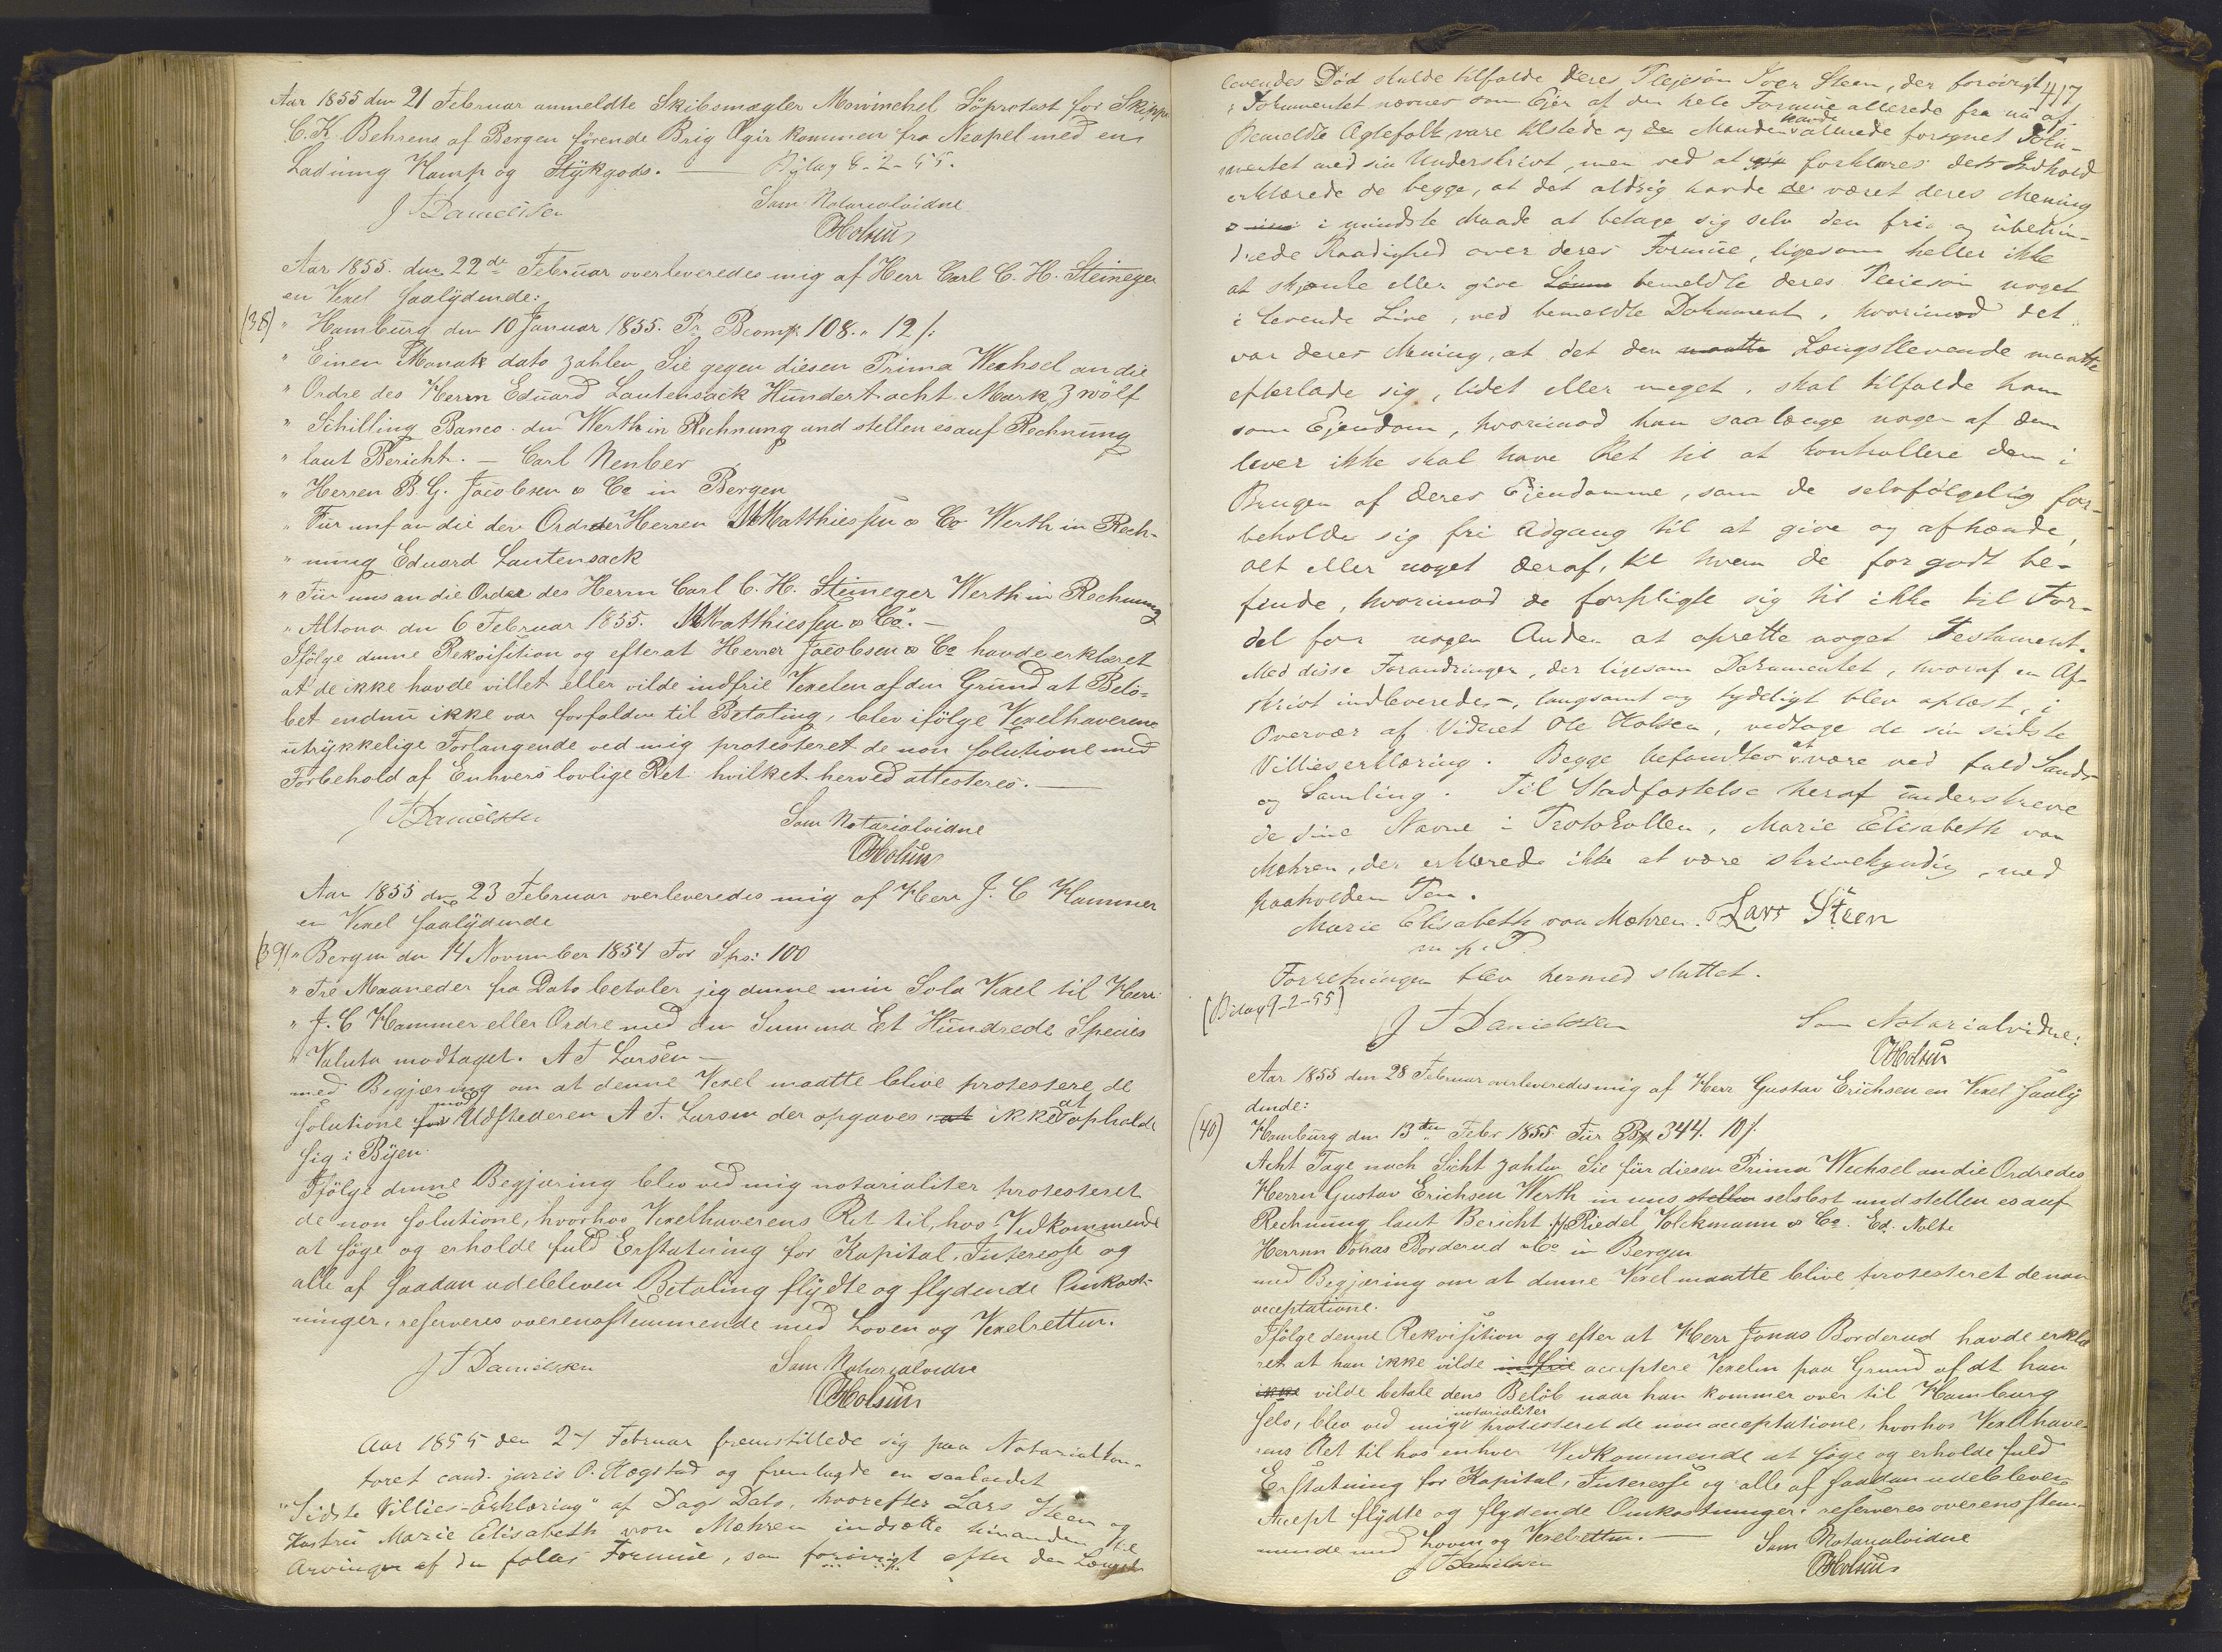 Aar 1855 den 21 Februar anmeldte Skibsmægler Mowinckel Söprotest for Skipper
C. K. Behrens af Bergen förende Brig Ægir kommen fra Neapel med en
Ladning Hamp og Stÿkgods. — Bilag 8-2-55.
J F Danielsen Som Notarialvidne
OHolsen
Aar 1855. den 22de Februar overleveredes mig af Herr Carl C. H. Steineger
en Vexel saalÿdende:
(38) " Hamburg den 10 Januar 1855. Pr Bcomp. 108. " 12 /:
" Einen Monat dato zahlen Sie gegen diesen Prima Wechsel an die
" Ordre des Herrn Eduard Lautensack Hundert acht Mark Zwölf
" Schilling Banco. den Werth in Rechnung und stellen es auf Rechnung
" laut Bericht. — Carl Nenber
" Herren B. G. Jacobsen & Co in Bergen
" Für uns an die den Ordre der Herren M Matthiessen & Co Werth in Rech-
" nung Eduard Lautensack
" Für uns an die Order des Herrn Carl C. H. Steineger Werth in Rechnung
" Altona den 6 Februar 1855. M Matthiessen & Co. —
Ifölge denne Rekvisition og efterat Herrer Jacobsen & Co havde erklæret
at de ikke havde villet eller vilde indfrie Vexelen af den Grund at Belö-
bet endnu ikke var forfalden til Betaling, blev ifölge Vexelhaverens
utrÿkkelige Forlangende ved mig protesteret de non solutione med
Forbehold af Enhvers lovlige Ret hvilket herved attesteres. —
J F Danielsen Som Notarialvidne
OHolsen
Aar 1855 den 23 Februar overleveredes mig af Herr J. C Hammer
en Vexel saalÿdende
(39) " Bergen den 14 November 1854 For Sps: 100
" Tre Maaneder fra Dato betaler jeg denne min Sola Vexel til Herr
" J. C Hammer eller Ordre med den Summa Et Hundrede Species
" Valuta modtaget. A F Larsen —
med Begjæring om at denne Vexel maatte blive protestere de
solutione for mod Udstederen A F. Larsen der opgaves at ikke at opholde
sig i Bÿen.
Ifölge denne Begjæring blev ved mig notarialiter protesteret
de non solutione, hvorhos Vexelhaverens Ret til, hos Vedkommende
at söge og erholde fuld Erstatning for Kapital, Interesse og
alle af saadan udebleven Betaling flÿdte og flydende Omkost-
ninger, reserveres overensstemmende med Loven og Vexelretten.
J F Danielsen Som Notarialvidne
OHolsen
Aar 1855 den 27 Februar fremstillede sig paa Notarialkon-
toret cand. juris O. Hegstad og fremlagde en saakaldet
"Sidste Villies-Erklæring" af Dags Dato, hvorefter Lars Steen og
Hustru Marie Elisabeth von Mehren indsætte hinanden til
Arvinger af den fælles Formue, som forövrigt efter den Længst-
417
levendes Död skulde tilfalde deres Plejesön Iver Steen, der forövrigt
i Dokumentet nævnes som Ejer af den hele Formue allerede fra nu af.
Bemeldte Ægtefolk vare tilstede og de Manden havde allerede forsynet Doku-
mentet med sin Underskrivt, men ved at forklares dets Indhold
erklærede de begge, at det aldrig havde de været deres Mening
i mindste Maade at betage sig selv den frie og ubehin-
drede Raadighed over deres Formue, ligesom heller ikke
at skjænke eller give bemeldte deres Pleiesön noget
i levende Live, ved bemeldte Dokument, hvorimod det
var deres Mening, at det den maatte Længstlevende maatte
efterlade sig, lidet eller meget, skal tilfalde ham
som Ejendom, hvorimod han saalænge nogen af dem
lever ikke skal have Ret til at kontrollere dem i
Brugen af deres Ejendomme, som de selvfölgelig for-
beholde sig fri Adgang til at give og afhænde,
alt eller noget deraf, til hvem de for godt be-
finde, hvorimod de forpligte sig til ikke til For-
del for nogen Anden at oprette noget Testament.
Med disse Forandringer, der ligesom Dokumentet, hvoraf en Af-
skrivt indleveredes, langsomt og tydeligt blev oplæst, i
Overvær af Vidnet Ole Holsen, vedtoge de sin sidste
Villieserklæring. Begge befandtes at være ved fuld Sands
og Samling. Til Stadfæstelse heraf underskreve
de sine Navne i Protokollen, Marie Elisabeth von
Mehren, der erklærede ikke at være skrivekyndig, med
paaholden Pen.
Marie Elisabeth von Mehren. Lars Steen
m. p. P.
Forretningen blev hermed sluttet.
(Bilag 9-2-55)
J F Danielsen Som Notarialvidne:
OHolsen
Aar 1855 den 28 Februar overleveredes mig af Herr Gustav Erichsen en Vexel saalÿ
dende:
(40) Hamburg den 13ten Febr 1855 Für B 344. 10 /.
Acht Tage nach Sicht zahlen Sie für diesen Prima Wechsel an die Ordre des
Herrn Gustav Erichsen Werth in uns stellen selsbst und stellen es auf
Rechnung laut Bericht. pp Riedel Volckmann & Co. Ed. Nolte
Herrnn Jonas Borderud & Co in Bergen
med Begjæring om at denne Vexel maatte blive protesteret de non
acceptatione.
Ifölge denne Rekvisition og efter at Herr Jonas Borderud havde erklæ
ret at han ikke vilde indfrie acceptere Vexelen paa Grund af at han
ikke vilde betale dens Belöb naar han kommer over til Hamburg
selv, blev ved mig notarialiter protesteret de non acceptatione, hvorhos Vexelhave-
rens Ret til hos enhver Vedkommende at söge og erholde fuld
Erstatning for Kapital, Interesse og alle af saadan udebleven
Accept flÿdte og flydende Omkostninger reserveres overensstem-
mende med Loven og Vexelretten. — Som Notarialvidne
J F Danielsen OHolsen